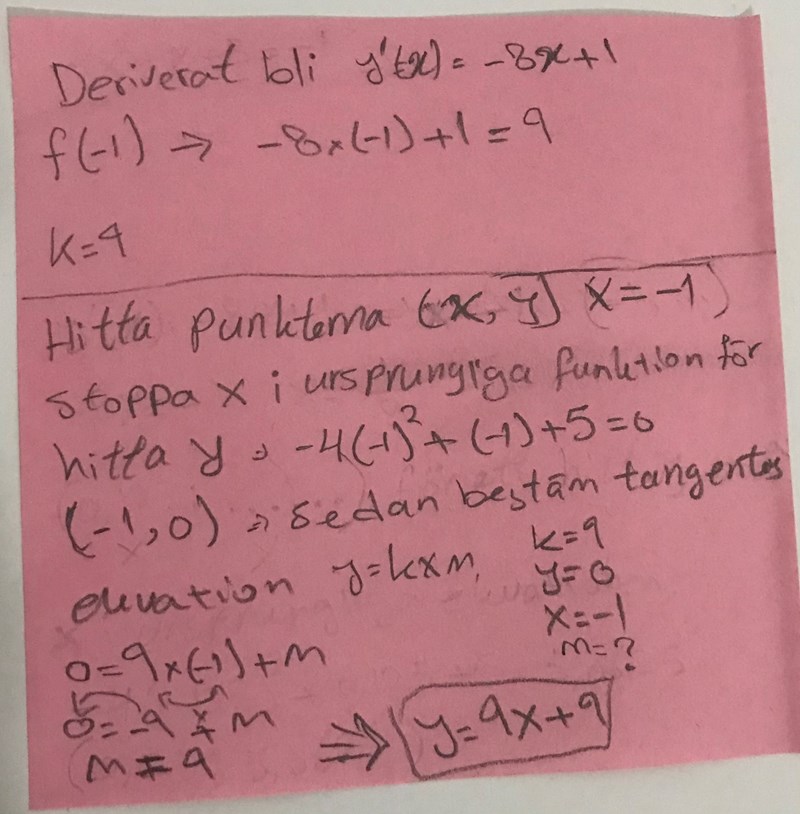 Deriverat bli y'(x) = -8x+1
f(-1) → -8x(-1)+1=9
k=9
Hitta punkterna (x, y) x=-1)
stoppa x i ursprungriga funktion för
hitta y ⇒ -4(-1)²+(-1)+5=0
(-1,0) ⇒ sedan bestäm tangentes
ekvation y=kxm,
k=9
y=0
x=-1
m=?
0=9x(-1)+m
0=-9+m
m=9
⇒ y=9x+9